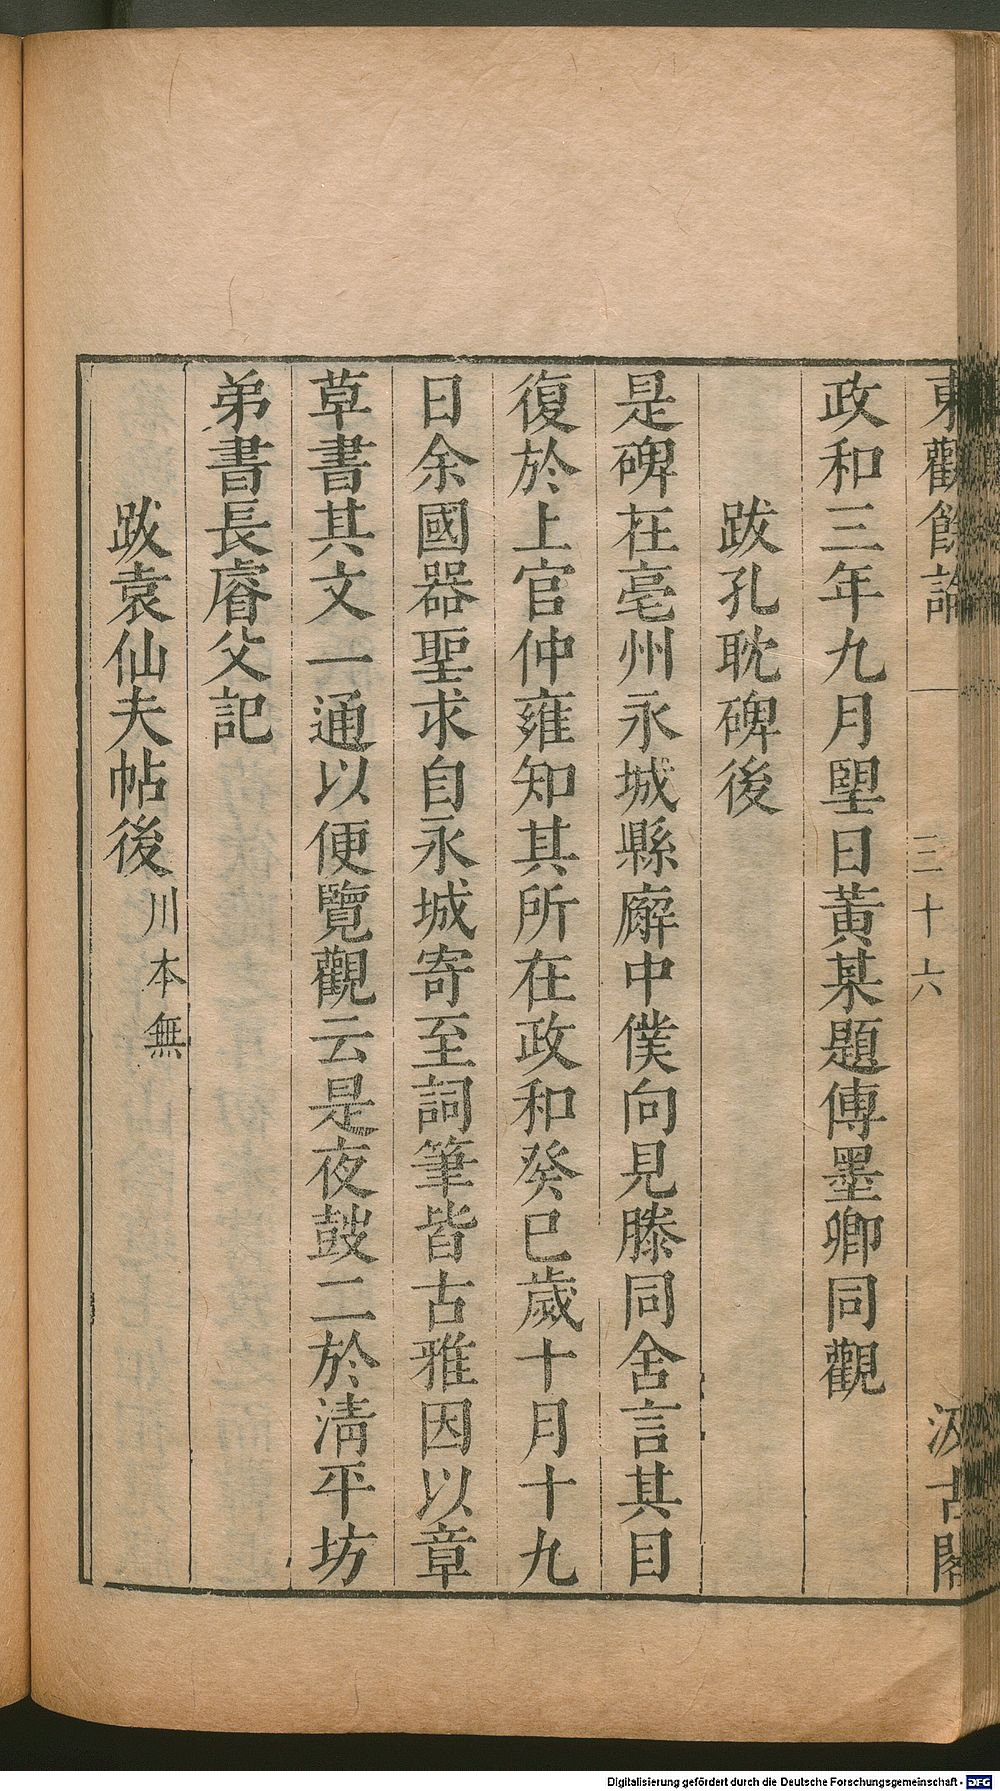 東觀餘論 三十六 汲古閣
政和三年九月朢日黃某題傅墨卿同觀
跋孔耽碑後
是碑在亳州永城縣廨中僕向見滕同舍言其目
復於上官仲雍知其所在政和癸巳歲十月十九
日余國器聖求自永城寄至詞筆皆古雅因以章
草書其文一通以便覽觀云是夜鼓二於清平坊
弟書長睿父記
跋袁仙夫帖後川本無
Digitalisierung gefördert durch die Deutsche Forschungsgemeinschaft - DFG